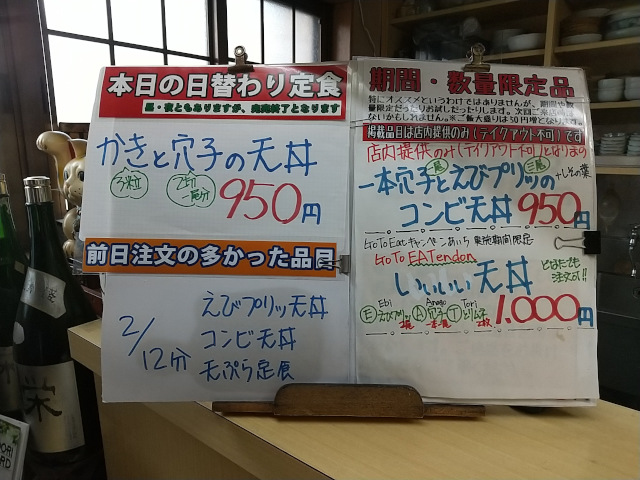 本日の日替わり定食
昼・夜ともありますが、売切終了となります
かきと穴子の天丼
3粒
950円
前日注文の多かった品目
2/12分
えびプリッ天丼
コンビ天丼
天ぷら定食
期間・数量限定品
特にオススメというわけではありませんが、期間や数
量限定だったりお試しだったりします。次回ご来店時は
ないかもしれません。※ご飯大盛りは50円増となります。
掲載品目は店内提供のみ(テイクアウト不可)です
店内提供のみ(テイクアウト不可)となります
一本穴子とえびプリッの
+しその葉
コンビ天丼 950円
GoToEatキャンペーンあいち 実施期間限定
GoTo EATendon
いいいい天丼
どなたでも
注文可!!
Ebi Anago Tori
Ⓔえびプリッ Ⓐ穴子 Ⓣとりムネ
2尾 一本 2枚
1.000円
栄